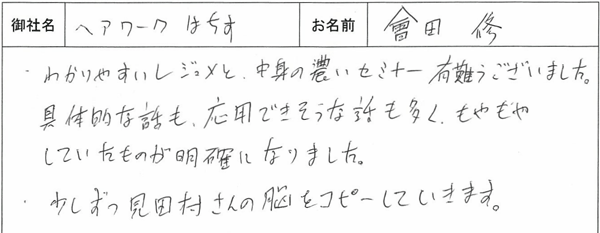 御社名 ヘアワーク はちす お名前 會田 修
・わかりやすいレジュメと、中身の濃いセミナー有難うございました。
具体的な話も、応用できそうな話も多く、もやもや
していたものが明確になりました。
・少しずつ見田村さんの脳をコピーしていきます。